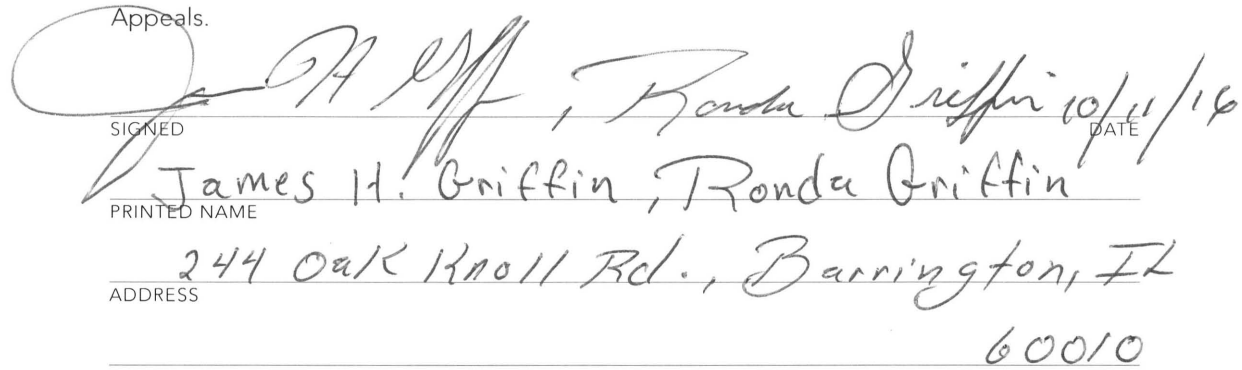 Appeals.
James H Griffin, Ronda Griffin 10/11/16
SIGNED DATE
James H. Griffin, Ronda Griffin
PRINTED NAME
244 Oak Knoll Rd., Barrington, IL
ADDRESS
60010